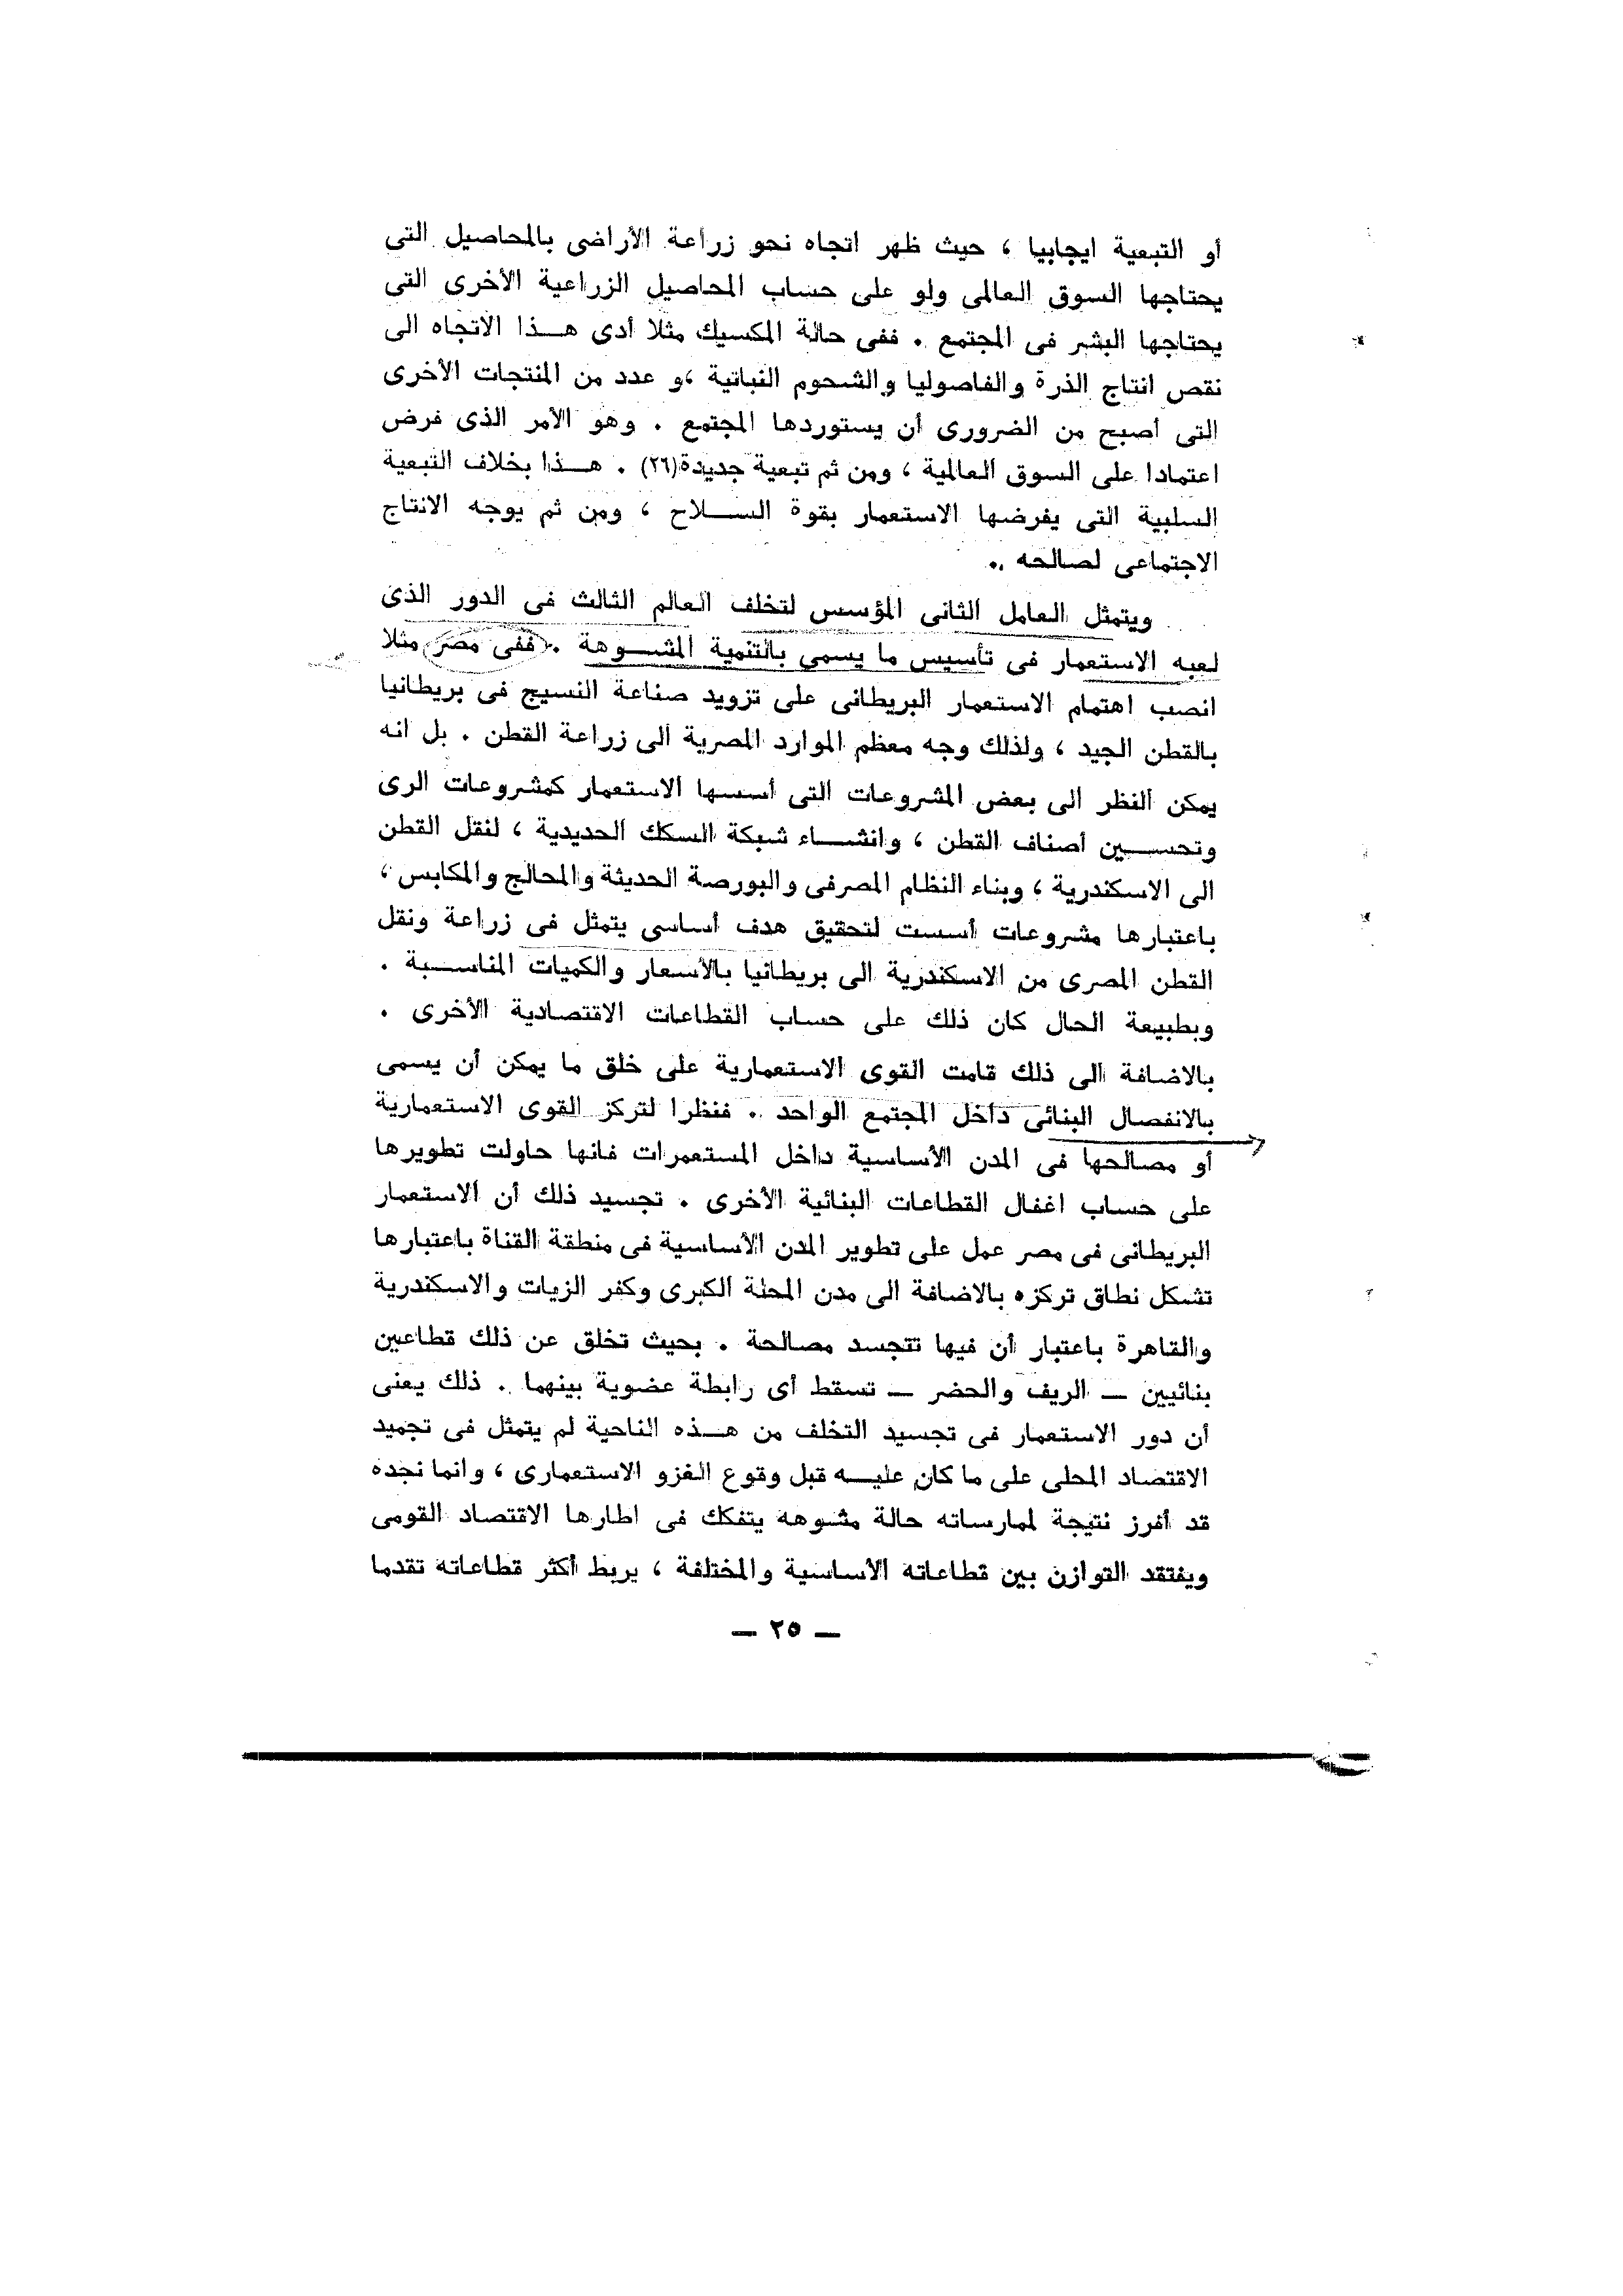 أو التبعية ايجابيا ، حيث ظهر اتجاه نحو زراعة الأراضى بالمحاصيل التى
يحتاجها السوق العالمى ولو على حساب المحاصيل الزراعية الأخرى التى
يحتاجها البشر فى المجتمع . ففى حالة المكسيك مثلا أدى هــذا الاتجاه الى
نقص انتاج الذرة والفاصوليا والشحوم النباتية ،و عدد من المنتجات الأخرى
التى أصبح من الضرورى أن يستوردها المجتمع . وهو الأمر الذى فرض
اعتمادا على السوق العالمية ، ومن ثم تبعية جديدة(٢٦) . هــذا بخلاف التبعية
السلبية التى يفرضها الاستعمار بقوة الســلاح ، ومن ثم يوجه الانتاج
الاجتماعى لصالحه .
ويتمثل العامل الثانى المؤسس لتخلف العالم الثالث فى الدور الذى
لعبه الاستعمار فى تأسيس ما يسمى بالتنمية المشــوهة . ففى مصر مثلا
انصب اهتمام الاستعمار البريطانى على تزويد صناعة النسيج فى بريطانيا
بالقطن الجيد ، ولذلك وجه معظم الموارد المصرية الى زراعة القطن . بل انه
يمكن النظر الى بعض المشروعات التى أسسها الاستعمار كمشروعات الرى
وتحســين أصناف القطن ، وانشــاء شبكة السكك الحديدية ، لنقل القطن
الى الاسكندرية ، وبناء النظام المصرفى والبورصة الحديثة والمحالج والمكابس ،
باعتبارها مشروعات أسست لتحقيق هدف أساسى يتمثل فى زراعة ونقل
القطن المصرى من الاسكندرية الى بريطانيا بالأسعار والكميات المناســبة .
وبطبيعة الحال كان ذلك على حساب القطاعات الاقتصادية الأخرى .
بالاضافة الى ذلك قامت القوى الاستعمارية على خلق ما يمكن أن يسمى
بالانفصال البنائى داخل المجتمع الواحد . فنظرا لتركز القوى الاستعمارية
أو مصالحها فى المدن الأساسية داخل المستعمرات فانها حاولت تطويرها
على حساب اغفال القطاعات البنائية الأخرى . تجسيد ذلك أن الاستعمار
البريطانى فى مصر عمل على تطوير المدن الأساسية فى منطقة القناة باعتبارها
تشكل نطاق تركزه بالاضافة الى مدن المحلة الكبرى وكفر الزيات والاسكندرية
والقاهرة باعتبار أن فيها تتجسد مصالحة . بحيث تخلق عن ذلك قطاعين
بنائيين ــ الريف والحضر ــ تسقط أى رابطة عضوية بينهما . ذلك يعنى
أن دور الاستعمار فى تجسيد التخلف من هــذه الناحية لم يتمثل فى تجميد
الاقتصاد المحلى على ما كان عليــه قبل وقوع الغزو الاستعمارى ، وانما نجده
قد أفرز نتيجة لممارساته حالة مشوهة يتفكك فى اطارها الاقتصاد القومى
ويفتقد التوازن بين قطاعاته الأساسية والمختلفة ، يربط أكثر قطاعاته تقدما
ــ ٢٥ ــ